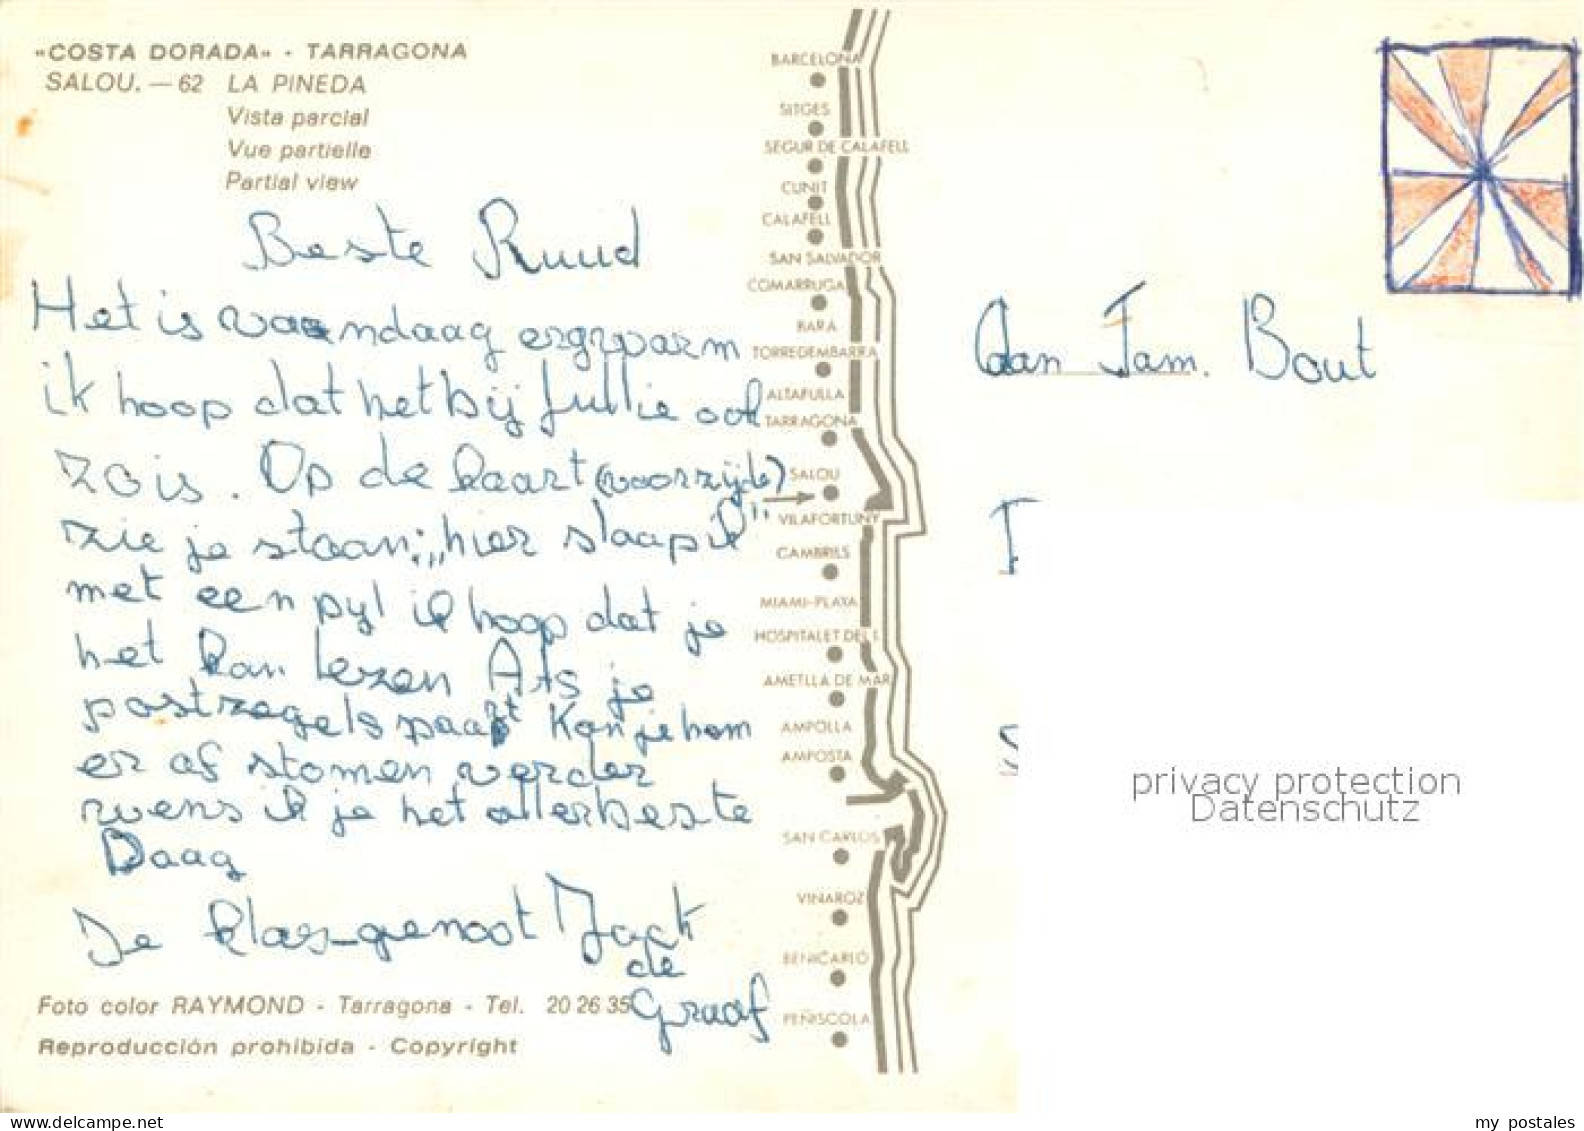 «COSTA DORADA» - TARRAGONA
SALOU. — 62 LA PINEDA
Vista parcial
Vue partielle
Partial view
Beste Ruud
Het is vaandaag ergwarm
ik hoop dat het bij jullie ook
zo is. Op de kaart (voorzijde)
zie je staan: „hier slaap ik"
met een pijl ik hoop dat je
het kan lezen Als je
postzegels spaart Kan je hem
er af stomen verder
wens ik je het allerbeste
Daag
Je klas-genoot Jack
de
Graaf
Foto color RAYMOND - Tarragona - Tel. 20 26 35
Reproducción prohibida - Copyright
BARCELONA
SITGES
SEGUR DE CALAFELL
CUNIT
CALAFELL
SAN SALVADOR
COMARRUGA
BARA
TORREDEMBARRA
ALTAFULLA
TARRAGONA
SALOU
VILAFORTUNY
CAMBRILS
MIAMI-PLAYA
HOSPITALET DEL I.
AMETLLA DE MAR
AMPOLLA
AMPOSTA
SAN CARLOS
VINAROZ
BENICARLO
PEÑISCOLA
Aan Fam. Bout
privacy protection
Datenschutz
my postales